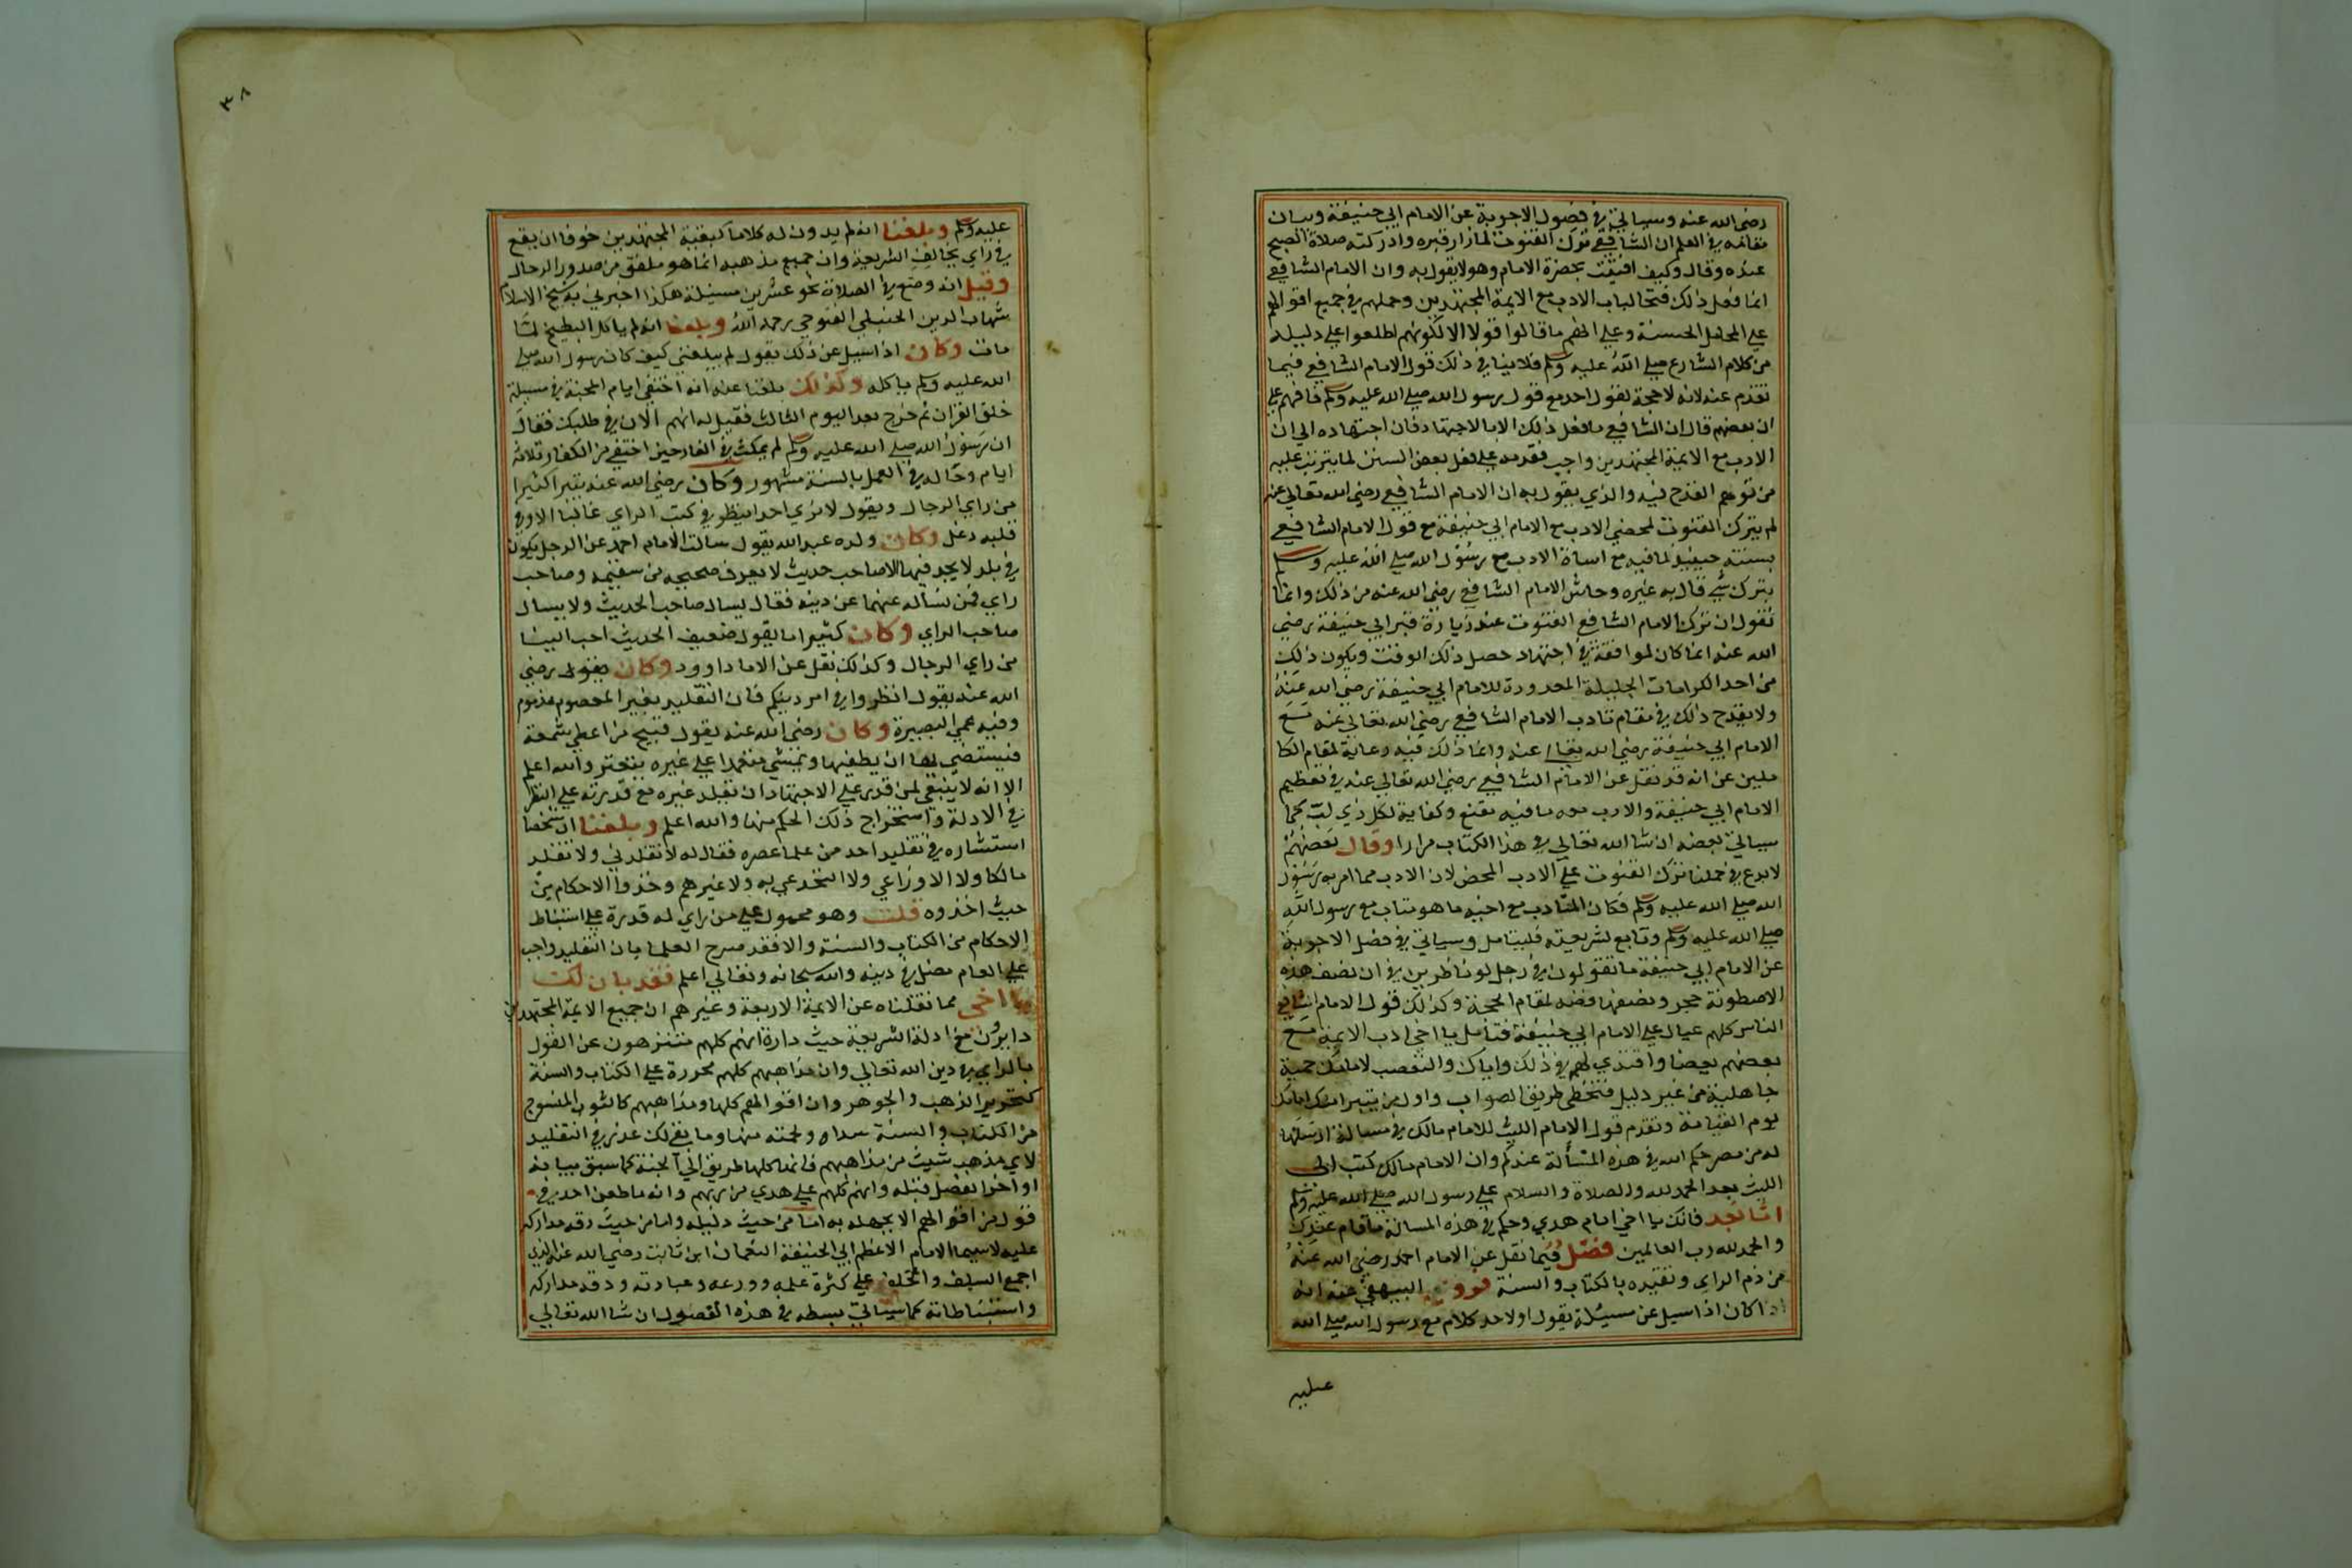 رضى الله عنه وسياتي في فصول الاجوبة عن الامام ابي حنيفة وبيان
مقامه في العلم ان الشافعي ترك القنوت لما زار قبره وادركته صلاة الصبح
عنده وقال وكيف اقنت بحضرة الامام وهو لا يقول به وان الامام الشافعي
انما فعل ذلك فتحا لباب الادب مع الايمة المجتهدين وحملهم في جميع اقوالهم
على المحامل الحسنة وعلى انهم ما قالوا قولا الا لكونهم اطلعوا على دليله
من كلام الشارع صلى الله عليه وسلم فلا ينافي ذلك قول الامام الشافعي فيما
تقدم عنه لانه لا حجة لقول احد مع قول رسول الله صلى الله عليه وسلم فافهم على
ان بعضهم قال ان الشافعي ما فعل ذلك الا بالاجتهاد فان اجتهاده الي ان
الادب مع الايمة المجتهدين واجب فقدمه على فعل بعض السنن لما يترتب عليه
من توهم القدح فيه والذي يقول به ان الامام الشافعي رضي الله تعالى عنه
لم يترك القنوت لمحض الادب مع الامام ابي حنيفة مع قول الامام الشافعي
بسنته حينيذ لما فيه مع اساة الادب مع رسول الله صلى الله عليه وسلم
بترك شي قال به غيره وحاشى الامام الشافعي رضي الله عنه من ذلك وانما
نقول ان ترك الامام الشافعي القنوت عند زيارة قبر ابي حنيفة رضي
الله عنه انما كان لموافقة في اجتهاد حصل ذلك الوقت ويكون ذلك
من احد الكرامات الجليلة المعدودة للامام ابي حنيفة رضي الله عنه
ولا يقدح ذلك في مقام تادب الامام الشافعي رضي الله تعالى عنه مع
الامام ابي حنيفة رضي الله تعالى عنه وانما ذلك فيه رعاية لمقام الكا
ملين عن انه قد نقل عن الامام الشافعي رضي الله تعالى عنه في تعظيم
الامام ابي حنيفة والادب معه ما فيه مقنع وكفاية لكل ذي لب كما
سياتي بعضه ان شا الله تعالى في هذا الكتاب مرارا وقال بعضهم
لا بدع في حملنا ترك القنوت على الادب المحض لان الادب مما امر به رسول
الله صلى الله عليه وسلم فكان المتادب مع اخيه ما هو متاب مع رسول الله
صلى الله عليه وسلم وتابع لشريعته فليتامل وسياتي في فصل الاجوبة
عن الامام ابي حنيفة ما تقولون في رجل لو ناظرني في ان نصف هذه
الاصطونة حجر ونصفها فضه لقام الحجة وكذلك قول الامام الشافعي
الناس كلهم عيال على الامام ابي حنيفة فتامل يا اخي ادب الايمة مع
بعضهم بعضا واقتدي لهم في ذلك واياك والتعصب لامامك حمية
جاهلية من غير دليل فتخطى طريق الصواب واول من يتبرا منك امامك
يوم القيامة وتقدم قول الامام الليث للامام مالك في مسالة ارسلها
له من مصر حكم الله في هذه المسألة عندكم وان الامام مالك كتب الى
الليث بعد الحمد لله والصلاة والسلام على رسول الله صلى الله عليه وسلم
اما بعد فانك يا اخي امام هدي وحكم في هذه المسالة ما قام عندك
والحمد لله رب العالمين فصل فيما نقل عن الامام احمد رضي الله عنه
من ذم الراي وتقيده بالكتاب والسنة فروي البيهقي عنه انه
اذا كان اذا سيل عن مسيلة يقول اولاحد كلام مع رسول الله صلى الله
عليه
٣٨
عليه وسلم وبلغنا انه لم يدون له كلاما كبقية المجتهدين خوفا ان يقع
في راي يخالف الشريعة وان جميع مذهبه انما هو ملفق من صدور الرجال
وقيل انه وضع في الصلاة نحو عشرين مسيلة هكذا اخبرني به شيخ الاسلام
شهاب الدين الحنبلي الفتوحي رحمه الله وبلغنا انه لم ياكل البطيخ لما
مات وكان اذا سيل عن ذلك يقول لم يبلغني كيف كان رسول الله صلى
الله عليه وسلم ياكله وكذلك بلغنا عنه انه اختفى ايام المحنة في مسيلة
خلق القران ثم خرج بعد اليوم الثالث فقيل له انهم الان في طلبك فقال
ان رسول الله صلى الله عليه وسلم لم يمكث في الغار حين اختفى من الكفار ثلاثة
ايام وحاله في العمل بالسنة مشهور وكان رضي الله عنه يتبرا كثيرا
من راي الرجال ويقول لا نري احدا ينظر في كتب الراي غالبا الا وفي
قلبه دغل وكان ولده عبد الله يقول سالت الامام احمد عن الرجل يكون
في بلد لا يجد فيها الا صاحب حديث لا يعرف صحيحه من سقيمه وصاحب
راي فمن نساله عنهما عن دينه فقال يسال صاحب الحديث ولا يسال
صاحب الراي وكان كثيرا ما يقول ضعيف الحديث احب الينا
من راي الرجال وكذلك نقل عن الامام داوود وكان يقول رضي
الله عنه يقول انظروا في امر دينكم فان التقليد بغير المعصوم مذموم
وفيه عمي البصيرة وكان رضي الله عنه يقول قبيح من اعطي شمعة
فيستضي بها ان يطفيها ويمشي معتمدا علي غيره يتعثر والله اعلم
الا انه لا ينبغي لمن قدر على الاجتهاد ان يقلد غيره مع قدرته على النظر
في الادلة واستخراج ذلك الحكم منها والله اعلم وبلغنا ان شخصا
استشاره في تقليد احد من علما عصره فقال له لا تقلدني ولا تقلد
مالكا ولا الاوزاعي ولا النخعي به ولا غيرهم وخذوا الاحكام من
حيث اخذوه قلت وهو محمول على من راي له قدرة على استنباط
الاحكام من الكتاب والسنة والا فقد صرح العلما بان التقليد واجب
علي العام مضل في دينه والله سبحانه وتعالى اعلم فقد بان لك
يا اخى مما نقلناه عن الايمة الاربعة وغيرهم ان جميع الايمة المجتهدين
دايرون مع ادلة الشريعة حيث دارة انهم كلهم متنزهون عن القول
بالراي في دين الله تعالى وان مذاهبهم كلهم محررة على الكتاب والسنة
كتحرير الذهب والجوهر وان اقوالهم كلها ومذاهبهم كالثوب المنسوج
من الكتاب والسنة سداه ولحمته منها وما بقي لك عذر في التقليد
لاي مذهب شيت من مذاهبهم فانها كلها طريق الى الجنة كما سبق بيانه
اواخر الفصل قبله وانهم كلهم على هدي من ربهم وانه ما طعن احد في
قول من اقوالهم الا بجهله به اما من حيث دليله واما من حيث دقه مداركه
عليه لا سيما الامام الاعظم ابي الحنيفة النعمان ابن ثابت رضي الله عنه الذي
اجمع السلف والخلف على كثرة علمه وورعه وعبادته ودقه مداركه
واستنباطاته كما سياتي بسطه في هذه الفصول ان شا الله تعالى